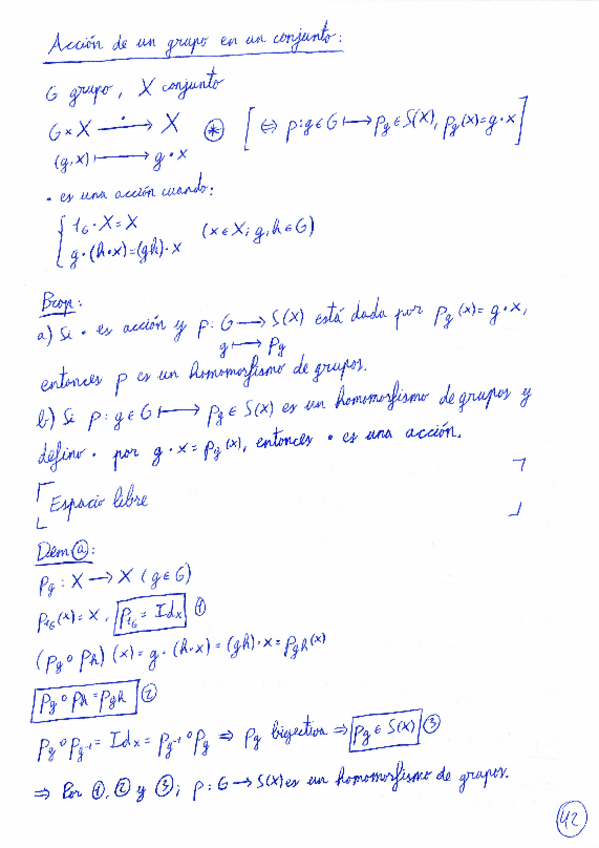 Acción de un grupo en un conjunto:
G grupo, X conjunto
G×X —·→ X ⊛ [⇔ ρ: g∈G ↦ ρ_g ∈ S(X), ρ_g(x) = g·x]
(g,x) ↦ g·x
· es una acción cuando:
{ 1_G·X = X
g·(h·x) = (gh)·x (x∈X; g,h∈G)
Prop:
a) Si · es acción y ρ: G → S(X) está dada por ρ_g(x) = g·x,
g ↦ ρ_g
entonces ρ es un homomorfismo de grupos.
b) Si ρ: g∈G ↦ ρ_g ∈ S(X) es un homomorfismo de grupos y
defino · por g·x = ρ_g(x), entonces · es una acción.
Espacio libre
Dem ⓐ:
ρ_g: X → X (g∈G)
ρ_{1_G}(x) = X. ρ_{1_G} = Id_X ①
(ρ_g ∘ ρ_h)(x) = g·(h·x) = (gh)·x = ρ_{gh}(x)
ρ_g ∘ ρ_h = ρ_{gh} ②
ρ_g ∘ ρ_{g⁻¹} = Id_X = ρ_{g⁻¹} ∘ ρ_g ⇒ ρ_g biyectiva ⇒ ρ_g ∈ S(X) ③
⇒ Por ①, ② y ③; ρ: G → S(X) es un homomorfismo de grupos.
42